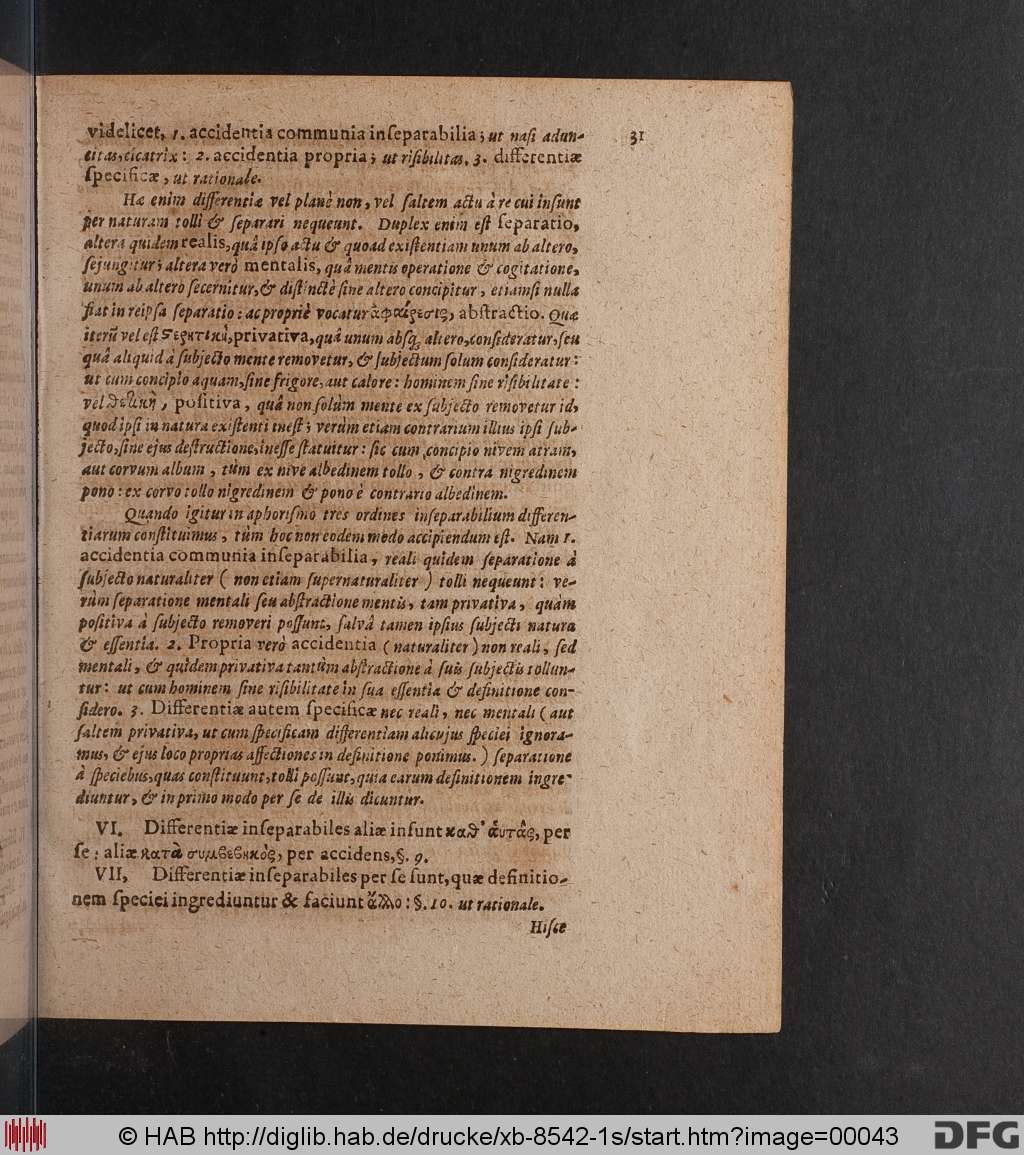 31
videlicet, 1. accidentia communia inſeparabilia; ut naſi adun-
citas, cicatrix: 2. accidentia propria; ut riſibilitas. 3. differentiæ
ſpecificæ, ut rationale.
Hæ enim differentiæ vel planè non, vel ſaltem actu à re cui inſunt
per naturam tolli & ſeparari nequeunt. Duplex enim eſt ſeparatio,
altera quidem realis, quâ ipſo actu & quoad exiſtentiam unum ab altero,
ſejungitur; altera verò mentalis, quâ mentis operatione & cogitatione,
unum ab altero ſecernitur, & diſtinctè ſine altero concipitur, etiamſi nulla
fiat in reipſa ſeparatio: ac propriè vocatur ἀφαίρεσις, abſtractio. Quæ
iterũ vel eſt ϛερητικὴ, privativa, quâ unum abſq; altero, conſideratur, ſeu
quâ aliquid à ſubjecto mente removetur, & ſubjectum ſolum conſideratur:
ut cum concipio aquam, ſine frigore, aut calore: hominem ſine riſibilitate:
vel θετικὴ, poſitiva, quâ non ſolùm mente ex ſubjecto removetur id,
quod ipſi in natura exiſtenti ineſt; verùm etiam contrarium illius ipſi ſub-
jecto, ſine ejus deſtructione, ineſſe ſtatuitur: ſic cum concipio nivem atram,
aut corvum album, tùm ex nive albedinem tollo, & contra nigredinem
pono: ex corvo tollo nigredinem & pono è contrario albedinem.
Quando igitur in aphoriſmo tres ordines inſeparabilium differen-
tiarum conſtituimus, tùm hoc non eodem modo accipiendum eſt. Nam 1.
accidentia communia inſeparabilia, reali quidem ſeparatione à
ſubjecto naturaliter (non etiam ſupernaturaliter) tolli nequeunt: ve-
rùm ſeparatione mentali ſeu abſtractione mentis, tam privativa, quàm
poſitiva à ſubjecto removeri poſſunt, ſalvâ tamen ipſius ſubjecti natura
& eſſentia. 2. Propria verò accidentia (naturaliter) non reali, ſed
mentali, & quidem privativa tantùm abſtractione à ſuis ſubjectis tollun-
tur: ut cum hominem ſine riſibilitate in ſua eſſentia & definitione con-
ſidero. 3. Differentiæ autem ſpecificæ nec reali, nec mentali (aut
ſaltem privativa, ut cum ſpecificam differentiam alicujus ſpeciei ignora-
mus, & ejus loco proprias affectiones in definitione ponimus.) ſeparatione
à ſpeciebus, quas conſtituunt, tolli poſſunt, quia earum definitionem ingre-
diuntur, & in primo modo per ſe de illis dicuntur.
VI. Differentiæ inſeparabiles aliæ inſunt καθ' ἁυτὰς, per
ſe: aliæ κατὰ συμβεβηκὸς, per accidens, §. 9.
VII, Differentiæ inſeparabiles per ſe ſunt, quæ definitio-
nem ſpeciei ingrediuntur & faciunt ἄλλο: §. 10. ut rationale.
Hiſce
© HAB http://diglib.hab.de/drucke/xb-8542-1s/start.htm?image=00043
DFG